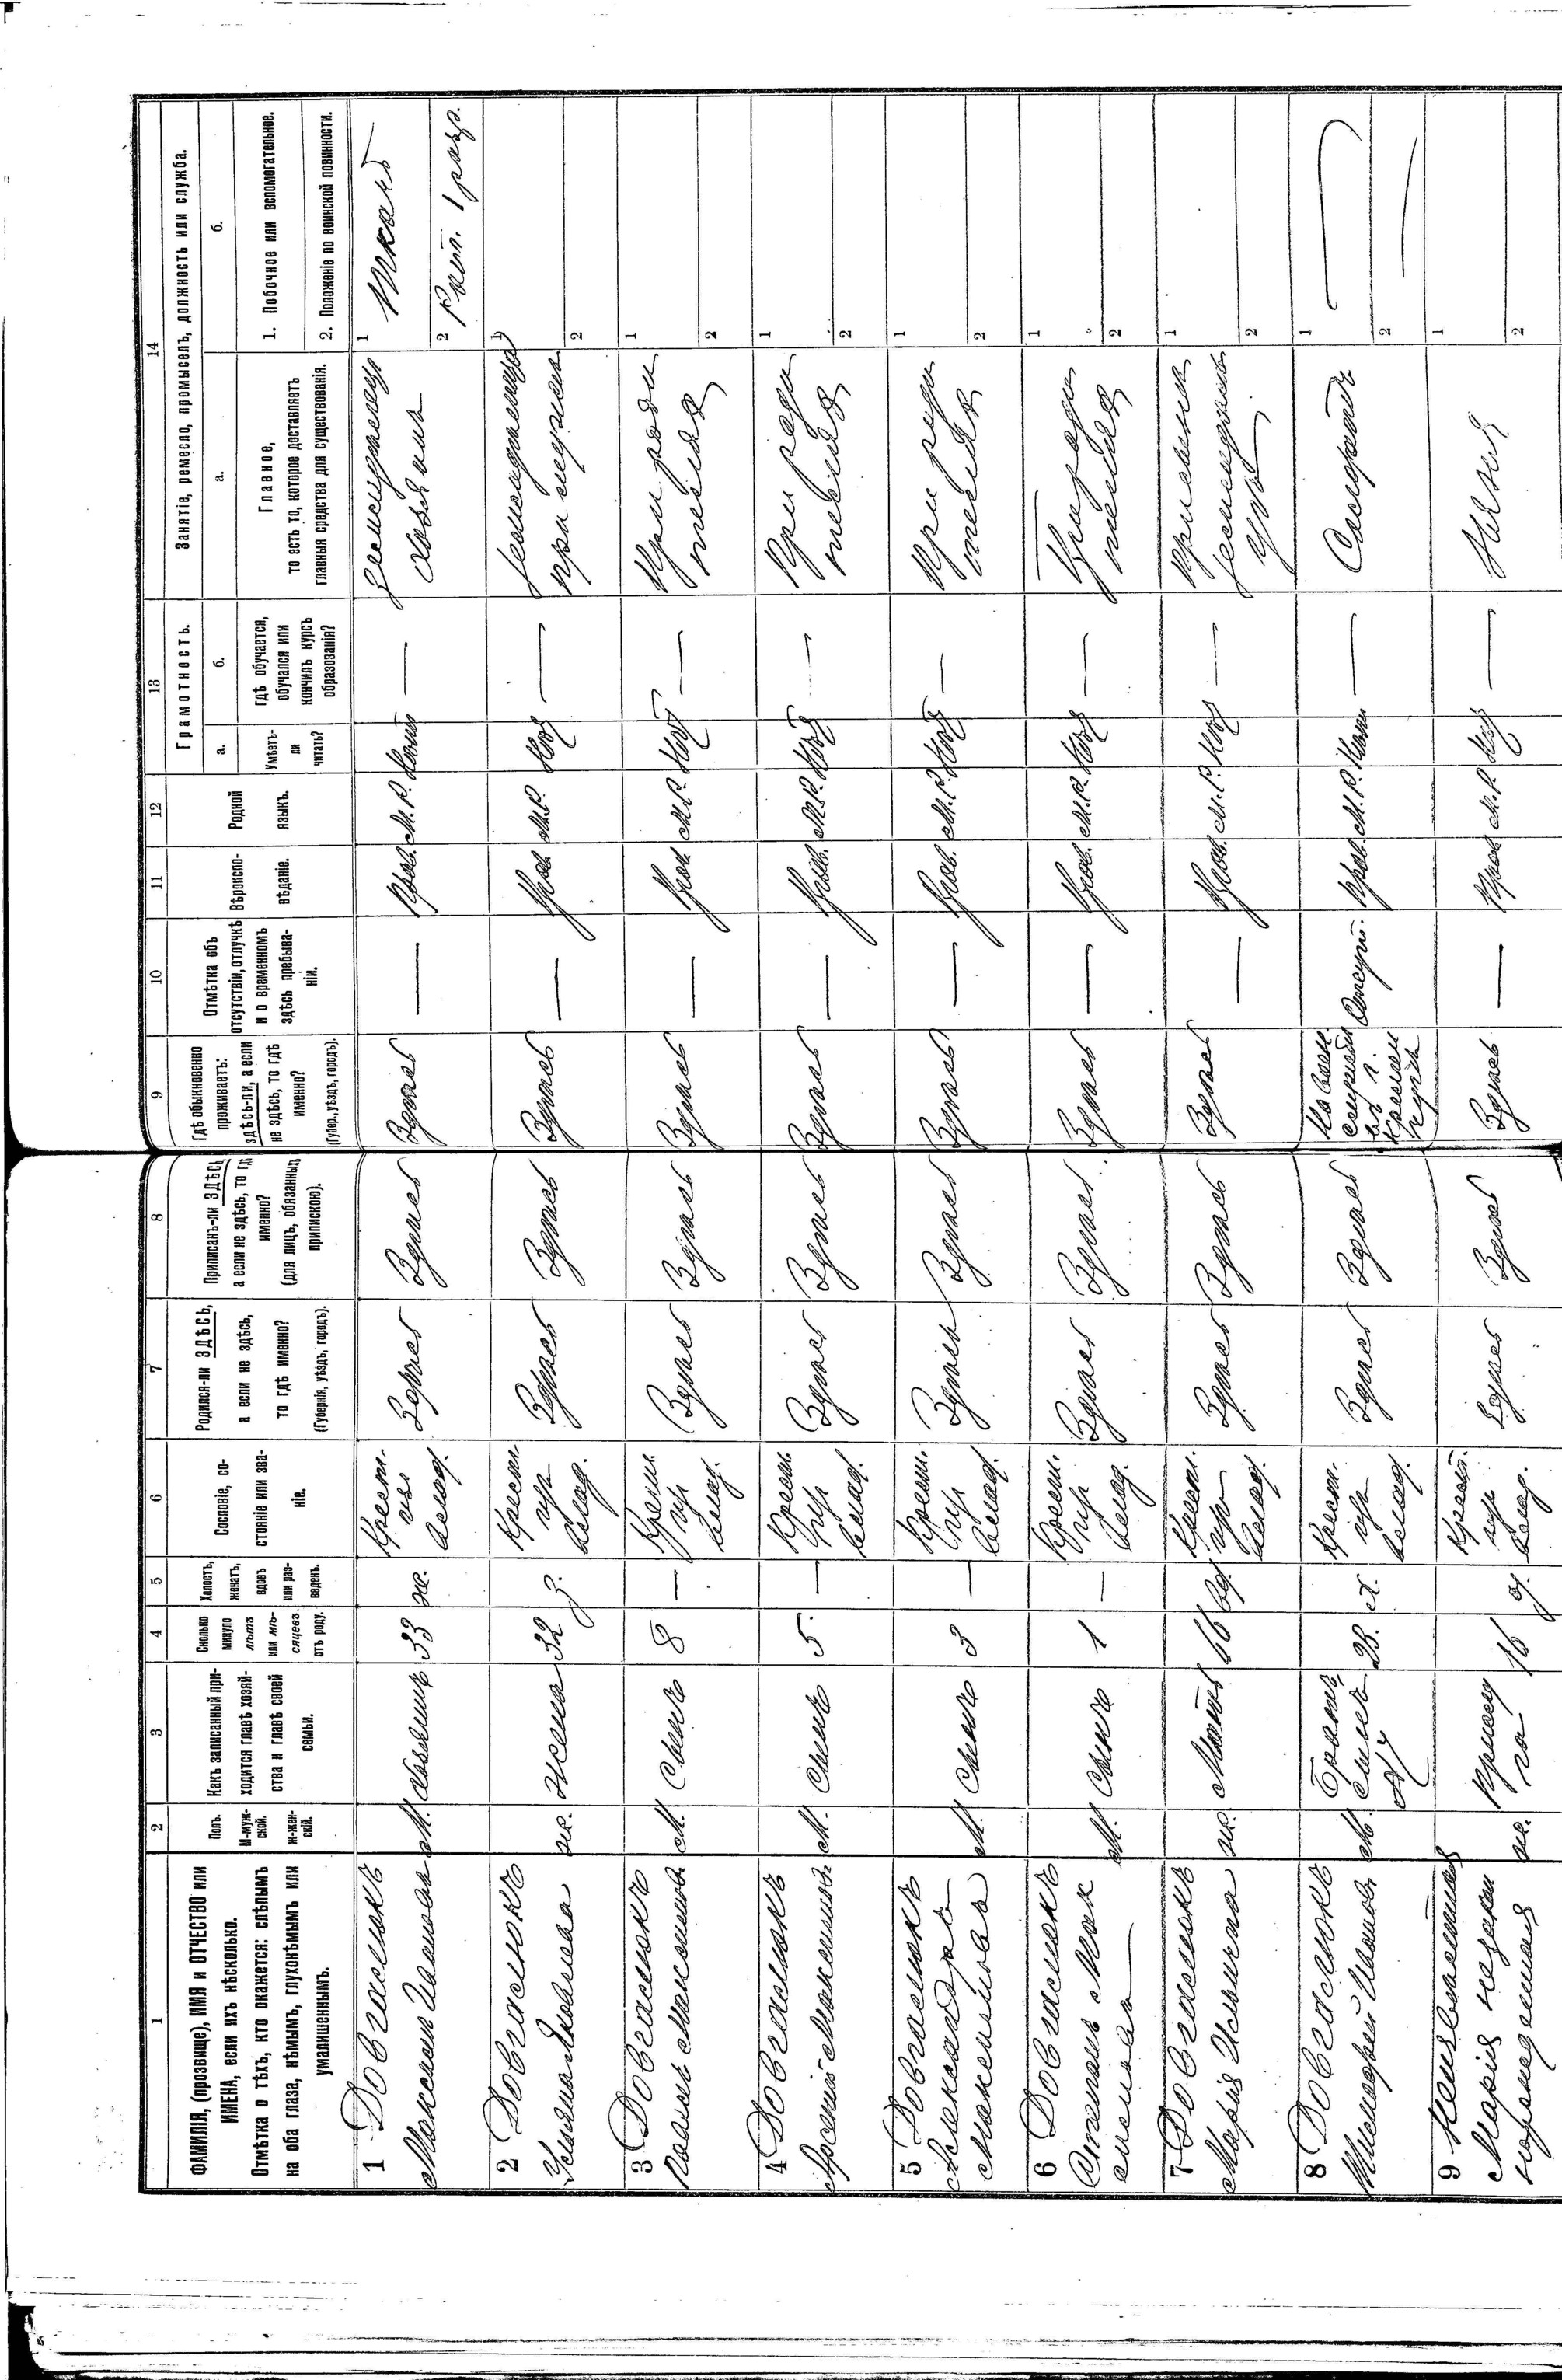 1
2
3
4
5
6
7
8
9
10
11
12
13
14
ФАМИЛІЯ, (прозвище), ИМЯ и ОТЧЕСТВО или
ИМЕНА, если ихъ нѣсколько.
Отмѣтка о тѣхъ, кто окажется: слѣпымъ
на оба глаза, нѣмымъ, глухонѣмымъ или
умалишеннымъ.
Полъ.
М-муж-
ской.
ж-жен-
скій.
Какъ записанный при-
ходится главѣ хозяй-
ства и главѣ своей
семьи.
Сколько
минуло
лѣтъ
или мѣ-
сяцевъ
отъ роду.
Холостъ,
женатъ,
вдовъ
или раз-
веденъ.
Сословіе, со-
стояніе или зва-
ніе.
Родился-ли ЗДѢСЬ,
а если не здѣсь,
то гдѣ именно?
(Губернія, уѣздъ, городъ).
Приписанъ-ли ЗДѢСЬ,
а если не здѣсь, то гдѣ
именно?
(для лицъ, обязанныхъ
припискою).
Гдѣ обыкновенно
проживаетъ:
здѣсь-ли, а если
не здѣсь, то гдѣ
именно?
(Губер., уѣздъ, городъ).
Отмѣтка объ
отсутствіи, отлучкѣ
и о временномъ
здѣсь пребыва-
ніи.
Вѣроиспо-
вѣданіе.
Родной
языкъ.
Грамотность.
а.
Умѣетъ-
ли
читать?
б.
гдѣ обучается,
обучался или
кончилъ курсъ
образованія?
Занятіе, ремесло, промыселъ, должность или служба.
а.
Главное,
то есть то, которое доставляетъ
главныя средства для существованія.
б.
1. Побочное или вспомогательное.
2. Положеніе по воинской повинности.
1 Довгалюкъ
Максимъ Ивановъ
м. хозяинъ 33 ж.
Крест.
из
влад.
Здѣсь Здѣсь Здѣсь — Прав. М.Р. —
земледѣлец
хозяинъ
1 Ткачъ
2 Рат. 1 разр.
2 Довгалюкъ
Ульяна Яковлева
ж. жена 32 з.
Крест.
из
влад.
Здѣсь Здѣсь Здѣсь — Прав. М.Р. Нѣт —
земледѣлица
при мужѣ
1
2
3 Довгалюкъ
Максимовъ
м. Сынъ 8 —
Крест.
из
влад.
Здѣсь Здѣсь Здѣсь — Прав. М.Р. Нѣт —
При роди
теляхъ
1
2
4 Довгалюкъ
Арсеній Максимовъ
м. Сынъ 5 —
Крест.
из
влад.
Здѣсь Здѣсь Здѣсь — Прав. М.Р. Нѣт —
При роди
теляхъ
1
2
5 Довгалюкъ
Александръ
Максимовъ
м. Сынъ 3 —
Крест.
из
влад.
Здѣсь Здѣсь Здѣсь — Прав. М.Р. Нѣт —
При роди
теляхъ
1
2
6 Довгалюкъ
Степанъ Мак
симовъ
м. Сынъ 1 —
Крест.
из
влад.
Здѣсь Здѣсь Здѣсь — Прав. М.Р. Нѣт —
При роди
теляхъ
1
2
7 Довгалюкъ
Марія
ж. Мать 66 вд.
Крест.
из
влад.
Здѣсь Здѣсь Здѣсь — Прав. М.Р. Нѣт —
при сынѣ
1
2
8 Довгалюкъ
Тимофей Ивановъ
м. Братъ
23. х.
Крест.
из
влад.
Здѣсь Здѣсь
На воен.
службѣ
в г.
Отсут. Прав. М.Р. —
Солдатъ
1
2
9
Марія незакон
норожденная
ж.
16
Крест.
из
влад.
Здѣсь Здѣсь Здѣсь — Прав. М.Р. Нѣт —
Няня
1
2